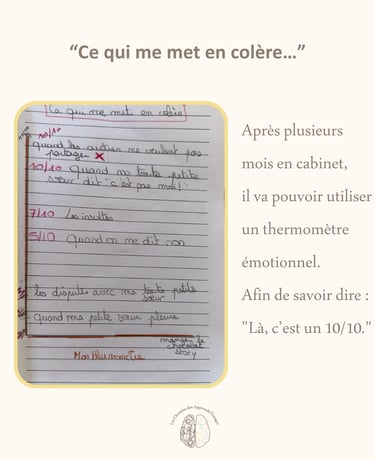 “Ce qui me met en colère...”
Ce qui me met en colère
10/10
quand les autres ne veulent pas
partager x
10/10 Quand ma toute petite
sœur dit "c'est pas moi!"
7/10 Les insultes
5/10 Quand on me dit non
les disputes avec ma toute petite
sœur
quand ma petite sœur pleure
manger le
chocolat
story
Mon thermomètre
Après plusieurs
mois en cabinet,
il va pouvoir utiliser
un thermomètre
émotionnel.
Afin de savoir dire :
"Là, c’est un 10/10."